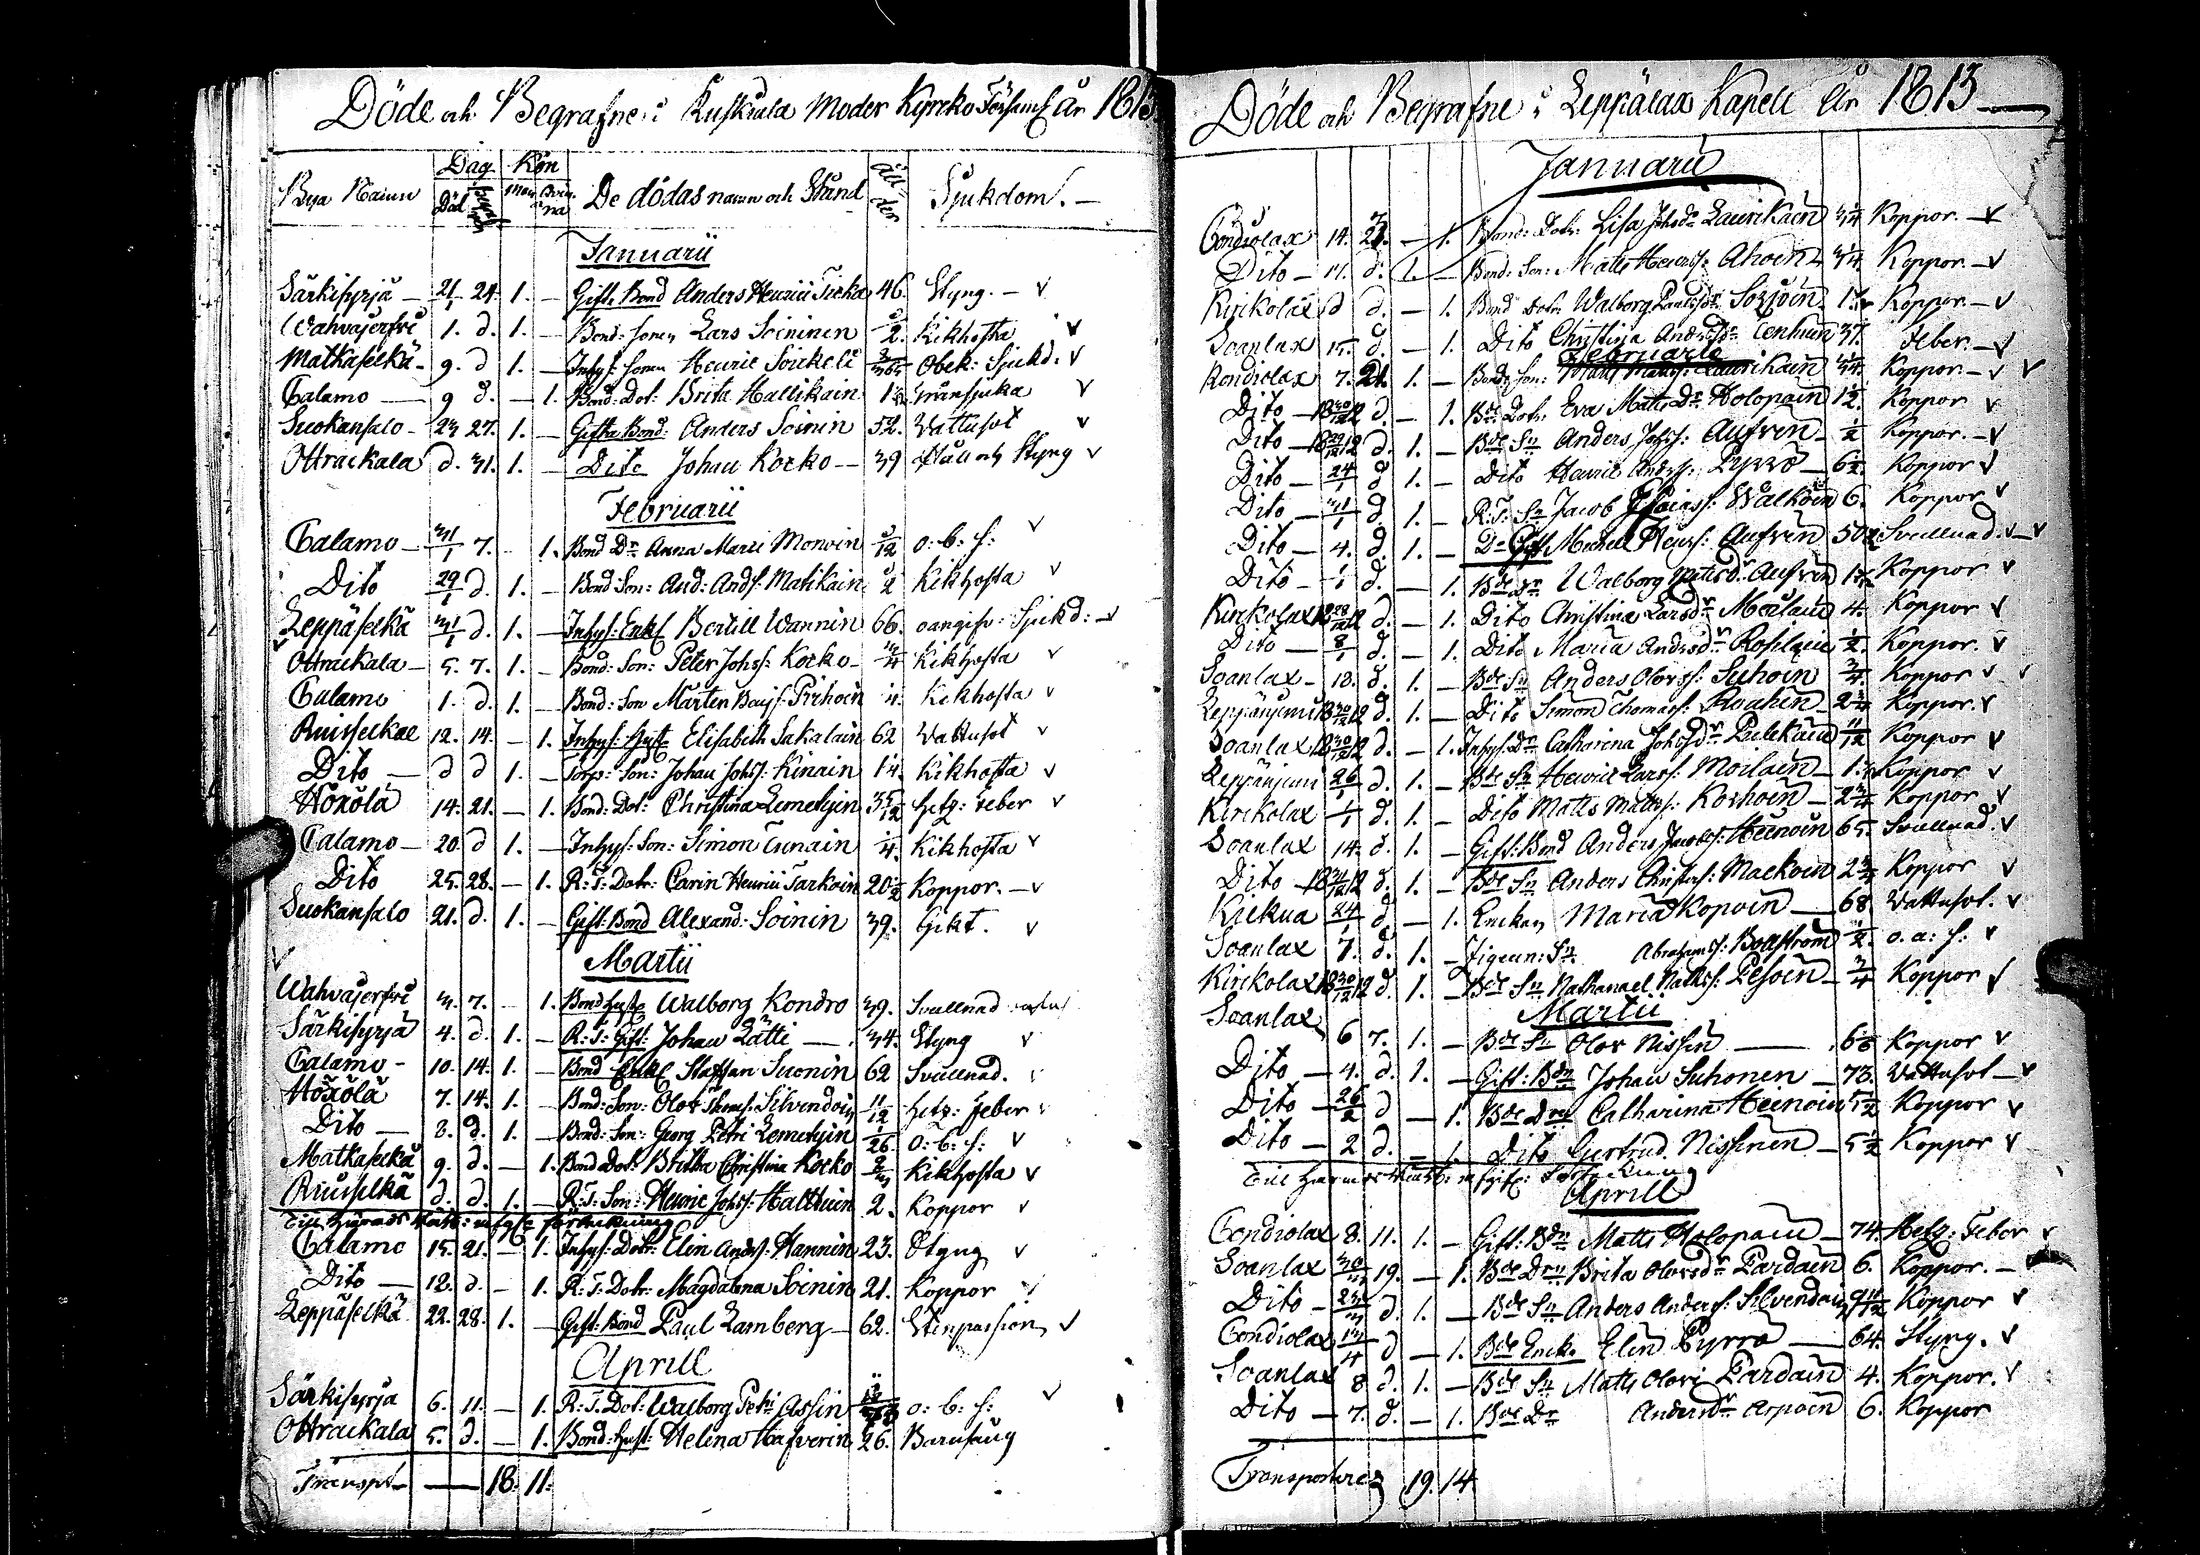 Döde och Begrafne i Kuskiala Moder Kyrcko Församl År 1813
Bya Namn Dag Kön De dödas namn och Stånd Ålder Sjukdom. –
Död Begraf Man Qvin na
Januarii
Särkisyrjä – 21/1 24. 1. – Gift. Bond Anders Henrici Ticka 46. Styng. –
Wahvajerfvi 1. d. 1. – Bond: Sonen Lars Soininen 1/2. Kikhosta
Matkaselkä – 9. d 1. – Inhys: Sonen Henric Obek: Sjukd.
Talamo – 9 d. – 1. Bond: Dot: Brita Hallikain
Suokansalo – 23 27. 1. – Gifta Bond: Anders Soinin 52. Wattusot
Ottrackala d. 31. 1. – Dito Johan Kocko – 39 Håll och Styng
Februarii
Talamo – 31/1 7. – 1. Bond Dr Anna Maria Monoin o: b: s:
Dito 29/1 d. 1. – Bond: Son: And: Ands: Matikain Kikhosta
Leppäselkä 31/1 d. 1. – Inhys: Enkl Bertill Wannin 66. oangifv: Sjukd: –
Ottrackala – 5. 7. 1. – Bond: Son: Peter Johss: Kocko – Kikhosta
Talamo 1. d. 1. – Bond: Son Mårten Pirhoin Kikhosta
Ruisselkae 12. 14. – 1. Inhys: Hust Elisabeth Sakalain 62 Wattusot
Dito – d d 1. – Torp: Son: Johan Johss: Kinain Kikhosta
Höxölä 14. 21. – 1. Bond: Dot: Christina Lemetyin 3 5/12 hetz: feber
Talamo – 20. d 1. – Inhys: Son: Simon Tunain Kikhosta
Dito 25. 28. – 1. R: T: Dotr: Carin Henrici Tarkoin 20 1/2 Koppor. –
Suokansalo 21. d. 1. – Gift: Bond Alexand: Soinin 39. Gikt.
Martii
Wahvajerfvi 3. 7. – 1. Bond hust Walborg Kondro 39. Svullnad
Särkisyrjä 4. d. 1. – R: T: Gift: Johan Lätti – 34. Styng
Talamo – 10. 14. 1. – Bond Enkl Staffan Suonin 62 Svullnad.
Höxölä 7. 14. 1. – Bond: Son: Olof Thoms: Silvendoin 11/12 hetz: feber
Dito – 8. d. 1. – Bond: Son: Georg Petri Lemetyin 1/26 o: b: s:
Matkaselkä 9. d. – 1. Bond Dot: Britha Christina Kocko Kikhosta
Ruisselkä d. d. 1. – R: T: Son: Henric Johss: Halttuin 2. Koppor
Till Härads Rätt: insgte förteckning
Talamo 15. 21. – 1. Inhys: Dotr: Elin Andss: Hannin 23. Styng
Dito – 18. d. – 1. R: T: Dotr: Magdalena Soinin 21. Koppor
Leppäselkä 22. 28. 1. – Gift: Bond Paul Lamberg – 62. Stenpassion
Aprill
Särkisyrja 6. 11. – 1. R: T. Dot: Walborg Petri Assin o: b: s:
Ottrackala 5. d. – 1. Bond: hust: Helena Hafverin 26. Barnsäng
Transpt – 18. 11.
Döde och Begrafne i Leppälax Kapell År 1813 –
Januarii
Condiolax 14. – 1. Bond: Dotr: Lisa Johsdr Laurikain 3/4 Koppor. –
Dito – 17. d. 1. – Bond: Son: Matts Henrs: Ahoin 3/4 Koppor. –
Kirikolax d d. – 1. Bond Dotr Walborg Paulsdr Sorjoin Koppor. –
Soanlax 15. d. – 1. Dito Christina Andersdr Tenhuin 37. feber. –
Februarii
Kondiolax 7. 21. 1. – Bonde son: Johan Matss: Laurikain 3/4 Koppor. –
Dito – 1812 30/12 d. – 1. Bde Dotr Eva Matts Dr Holopain 1 1/2. Koppor
Dito – 1812 29/12 d. 1. – Bde Sn Anders Johss: Aufvin – 1/2 Koppor. –
Dito – 24/1 d 1. – Dito Henric Andrss: Pyrrö – 6 1/2. Koppor
Dito – 31/1 d. 1. – R: T: Sn Jacob Esaiass: Walkoin 6. Koppor
Dito – 4. d. 1. – Do Gift Michell Henrs: Aufvin 50 1/2 Svullnad.
Dito – 1/1 d. – 1. Bde Dr Walborg Petersdr Aufvin Koppor
Kirikolax 1812 28/12 d. – 1. Dito Christina Larsdr Moilain 4. Koppor
Dito – 8/1 d. – 1. Dito Maria Andersdr Rossilain 1/2. Koppor.
Soanlax – 18. d. 1. – Bde Sn Anders Olofss: Suhoin 3/4. Koppor
Leppäniemi 1812 30/12 d. 1. – Dito Simon Thomass: Roahin – 2 3/4 Koppor.
Soanlax 1812 30/12 d. – 1. Inhys. Dr Catharina Johsdr Pulckain 11/12 Koppor
Leppäniem 26/1 d. 1. – Bde Sn Henric Larss: Moilain – Koppor
Kirikolax 1/1 d. 1. – Dito Matts Mattss: Korhoin – 2 3/4 Koppor
Soanlax 14. d. 1. – Gift: Bond Anders Jacobss: Heinoin 65. Svullnad.
Dito – 1812 31/12 d. 1. – Bde Sn Anders Christers: Mackoin 2 3/4 Koppor
Kickua 24/1 d – 1. Enckan Maria Kopoin – 68. Wattusot.
Soanlax 7. d. 1. – Zigeun: Sn. Abrahamss: Bollström 1/2. o. a: s:
Kirikolax 1812 30/12 d. 1. – Bde Sn Nathanael Nathss: Pesoin – 3/4 Koppor
Martii
Soanlax 6 7. 1. – Bde Sn Olof Nissin – Koppor
Dito – 4. d. 1. – Gift: Bdn Johan Suhonen – 73. Wattusot –
Dito – 26/2 d – 1. Bde Drn Catharina Heinoin 5 1/2 Koppor
Dito – 2 d. – 1. Dito Gertrud Nissinen – 5 1/2 Koppor
Till Härads
Aprill
Condiolax 8. 11. 1. – Gift: Bdn Matts Holopain – 74. Hetz: Feber
Soanlax 30/3 19. – 1. Bde Drn Brita Olofsdr Pardain 6. Koppor. –
Dito – d. 1. – Bde Sn Anders Anders: Silvendoin 9 11/12 Koppor
Condiolax d – 1. Bde Enck: Elin Pyrrö – 64. Styng.
Soanlax 8 d. 1. – Bde Sn Matts Olovi Pardain 4. Koppor.
Dito – 7. d. – 1. Bde Dr Andersdr Arpoin 6. Koppor
Transporteres 19. 14.